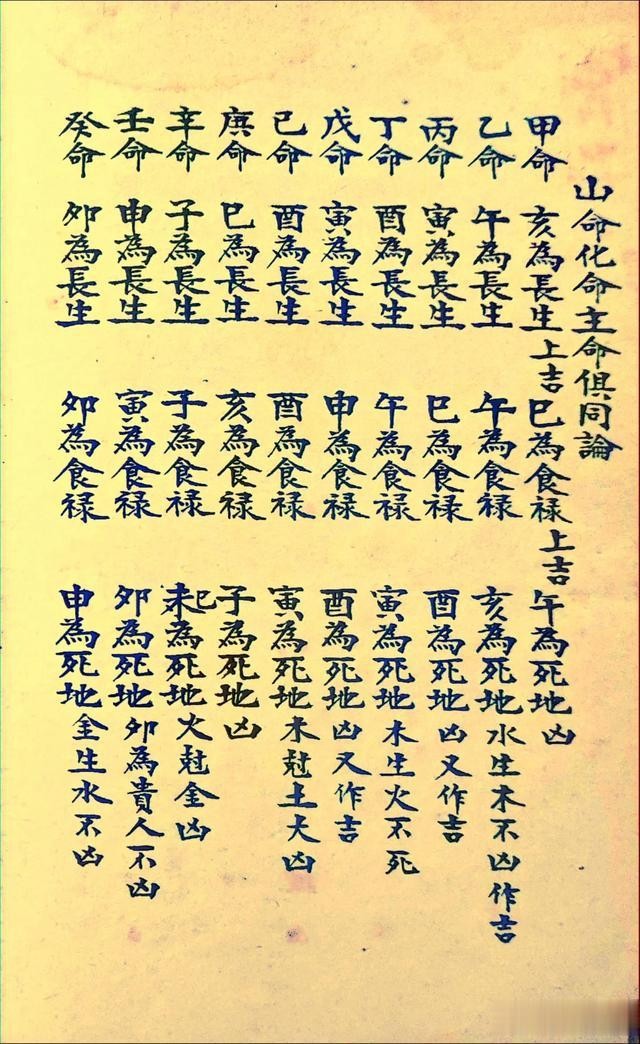 山命化命主命俱同論
甲命 亥為長生上吉 巳為食禄上吉 午為死地凶
乙命 午為長生 午為食禄 亥為死地水生木不凶作吉
丙命 寅為長生 巳為食禄 酉為死地凶又作吉
丁命 酉為長生 午為食禄 寅為死地木生火不死
戊命 寅為長生 申為食禄 酉為死地凶又作吉
己命 酉為長生 酉為食禄 寅為死地木尅土大凶
庚命 巳為長生 亥為食禄 子為死地凶
辛命 子為長生 子為食禄 未巳為死地火尅金凶
壬命 申為長生 寅為食禄 卯為死地卯為貴人不凶
癸命 卯為長生 卯為食禄 申為死地金生水不凶